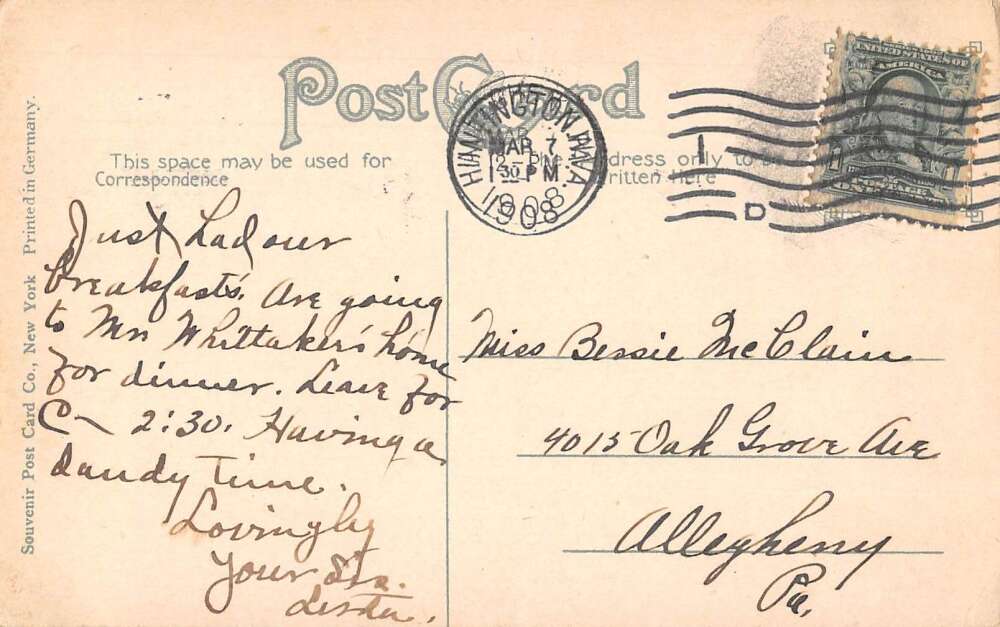 Post Card
This space may be used for
Correspondence
Address only to be
Written here
HUNTINGTON, W.VA.
MAR 7
12 30 PM
1908
1
D
UNITED STATES OF
AMERICA
Just had our
breakfasts. Are going
to Mrs Whittaker's home
for dinner. Leave for
C— 2:30. Having a
dandy time.
Lovingly
Your Sis.
Miss Bessie McClain
4015 Oak Grove Ave
Allegheny
Pa.
Souvenir Post Card Co., New York Printed in Germany.